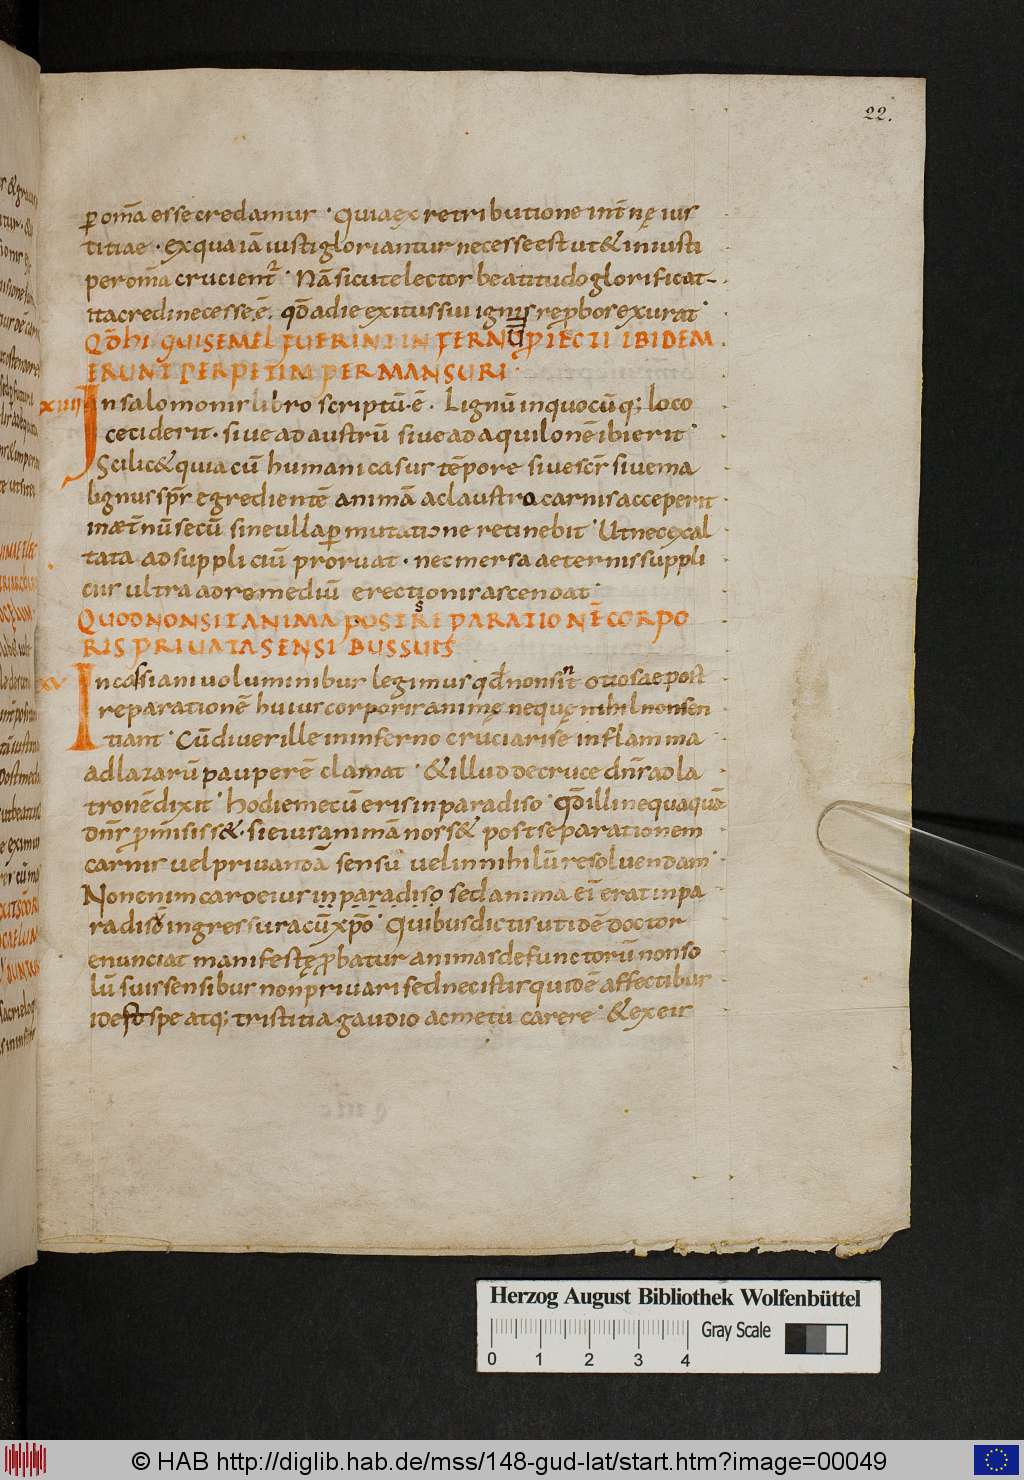 22.
ꝑ om̄a esse credamur · quia ex retributione int̄nę ius
titiae · ex qua iā iusti gloriantur necesse est ut & iniusti
per om̄a crucient᷑ · Nā sicut electos beatitudo glorificat
ita credi necesse ē · qđ a die exitus sui ignis reꝓbos exurat
QĐ HI QUI SEMEL FUERINT IN FERNŪ PIECTI IBIDEM
ERUNT PERPETIM PERMANSURI
XIIII In salomonis libro scriptū · ē · Lignū in quocūq; loco
ceciderit · siue ad austrū siue ad aquilonē ibi erit
Scilic& quia cū humani casus tēpore siue scs̄ siue ma
lignus sps̄ egredientē animā a claustro carnis acceperit
in æt̄nū secū sine ulla ꝑmutatione retinebit · Ut nec exal
tata ad suppliciū proruat · nec mersa aeternis suppli
ciis ultra ad remediū erectionis ascendat
QUOD NON SIT ANIMA POST SEPARATIONĒ CORPO
RIS PRIUATA SENSIBUS SUIS
XV In cassiani uoluminibus legimus qd̄ non sint otiosae post
reparationē huius corporis animę neque nihil non sen
tiant · Cū diues ille in inferno cruciari se in flamma
ad lazarū pauperē clamat · & illud de cruce dn̄s ad la
tronē dixit · hodie mecū eris in paradiso · Qđ illi nequaquā
dn̄s ꝓmisiss& · si eius animā noss& post separationem
carnis uel priuandā sensu uel in nihilū resoluendam
Non enim caro eius in paradiso sed anima eī erat in pa
radisō ingressura cū xp̄o · Quibus dictis ut idē doctor
enunciat manifestę ꝓbatur animas defunctorū non so
lū suis sensibus non priuari sed nec istis quidē affectibus
id est spe atq; tristitia gaudio ac metu carere · & ex eis
Herzog August Bibliothek Wolfenbüttel
Gray Scale
0 1 2 3 4
© HAB http://diglib.hab.de/mss/148-gud-lat/start.htm?image=00049